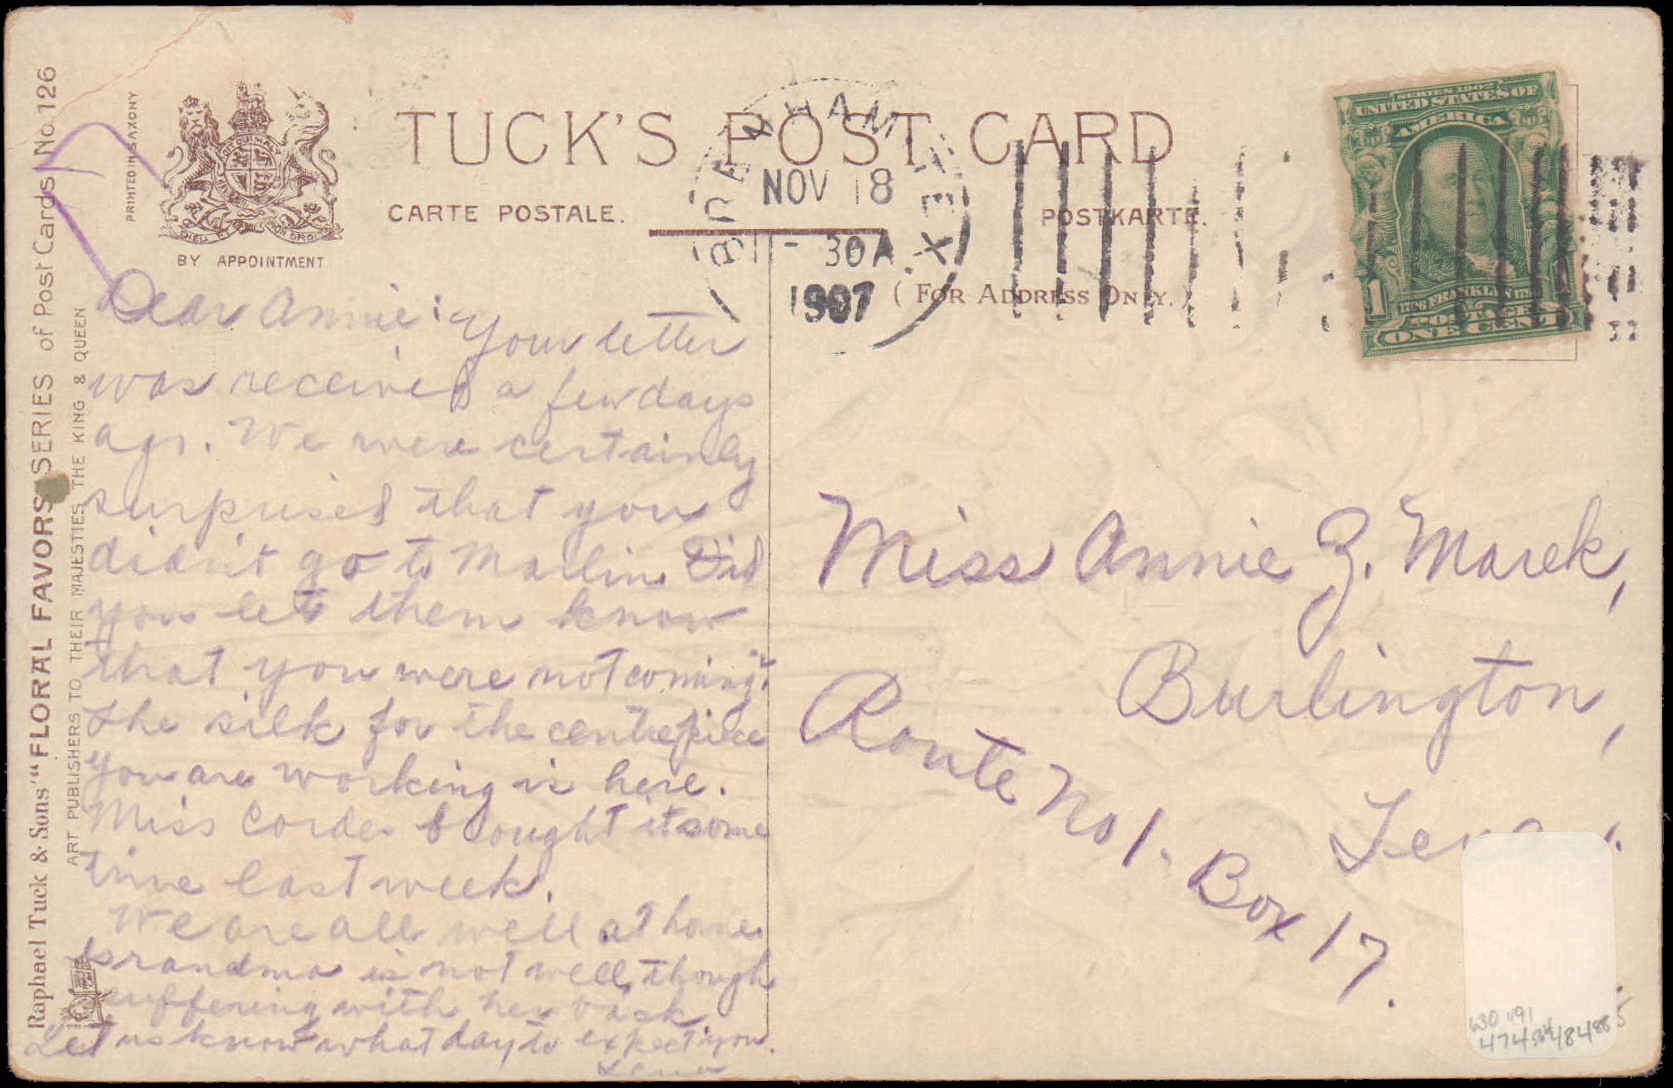 Raphael Tuck & Sons' "FLORAL FAVORS" SERIES of Post Cards No. 126
ART PUBLISHERS TO THEIR MAJESTIES THE KING & QUEEN
PRINTED IN SAXONY
BY APPOINTMENT
TUCK'S POST CARD
CARTE POSTALE.
POSTKARTE.
(FOR ADDRESS ONLY.)
NOV 18
30A
1907
SERIES 1902
UNITED STATES OF
AMERICA
FRANKLIN
POSTAGE
ONE CENT
Dear Annie: Your letter
was received a few days
ago. We were certainly
surprised that you
didn't go to Marlin. Did
you let them know
that you were not coming?
The silk for the centrepiece
you are working is here.
Miss Cordes bought it some
time last week.
We are all well at home.
Grandma is not well, though
suffering with her back
Let us know what day to expect you.
Lena
Miss Annie Z. Marek,
Burlington,
Route No 1. Box 17.
630 191